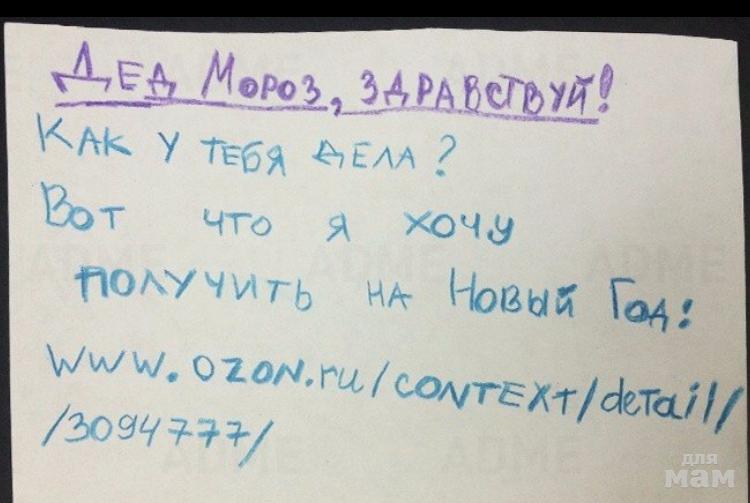 Дед Мороз, здравствуй!
Как у тебя дела?
Вот что я хочу
получить на Новый Год:
www.ozon.ru/context/detail/
/3094777/
для
мам